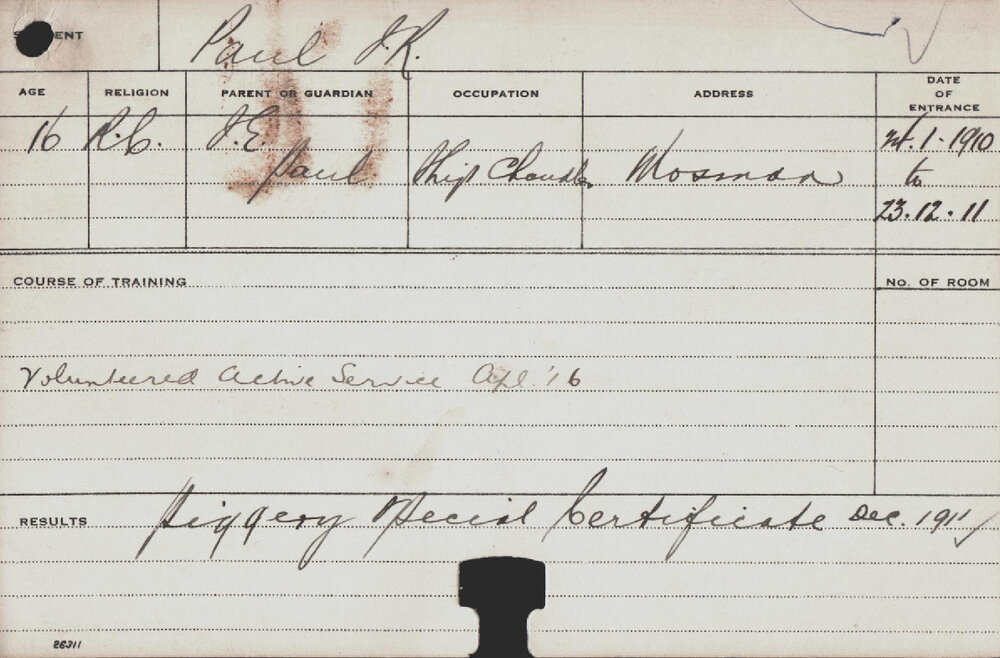 STUDENT Paul J.R.
AGE RELIGION PARENT OR GUARDIAN OCCUPATION ADDRESS DATE OF ENTRANCE
16 R.C. J.E. Paul Ship Chandler Mosman 1·1910
to
23·12·11
COURSE OF TRAINING
NO. OF ROOM
Volunteered Active Service Apl. '16
RESULTS Piggery Special Certificate Dec. 1911
26311